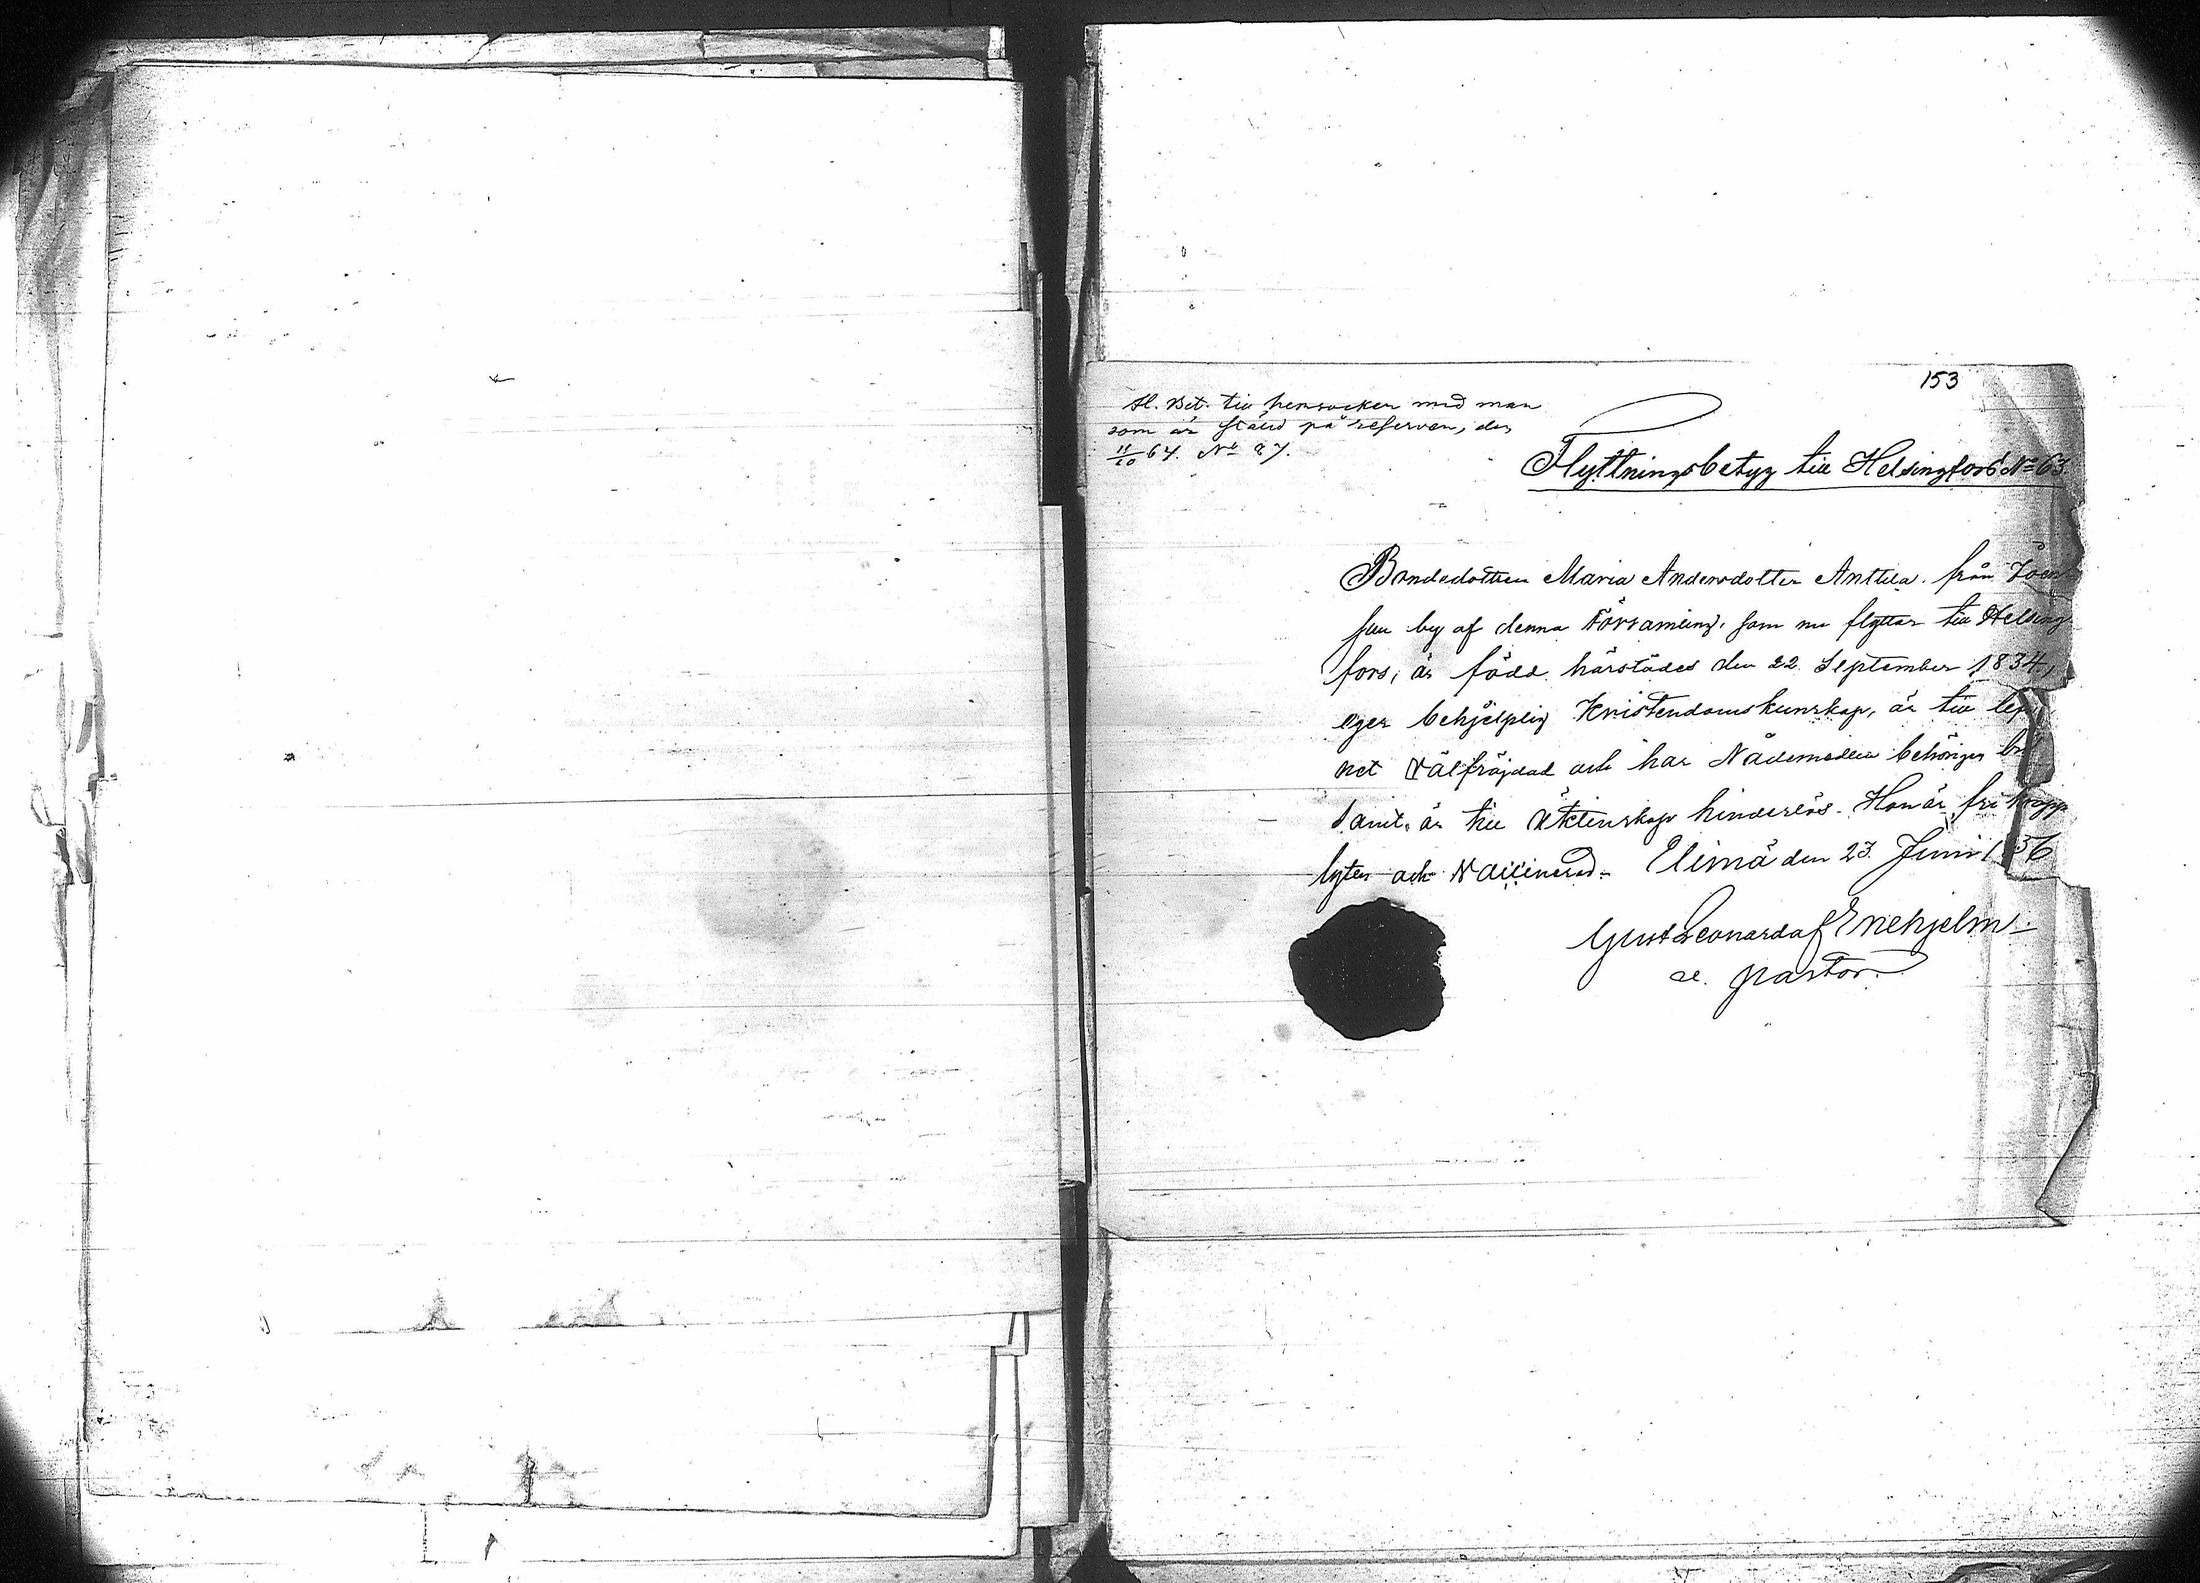 153
fl. Bet. till hemorten med man
som är stäld på reserven, den
11/10 64. No 87.
Flyttningsbetyg till Helsingfors No 63
Bondedottren Maria Andersdotter Anttila från
by af denna Församling, som nu flyttar till Helsing
fors, är född härstädes den 22 September 1834,
eger behjelplig Kristendomskunskap, är till lefver
net välfräjdad och har Nådemedlen behörigen
samt är till Äktenskap hinderlös. Hon är fri kropp
lyten och Vaccinerad. Elimä den 23 Juni 1856
Gust Leonard af Enehjelm.
v. pastor.